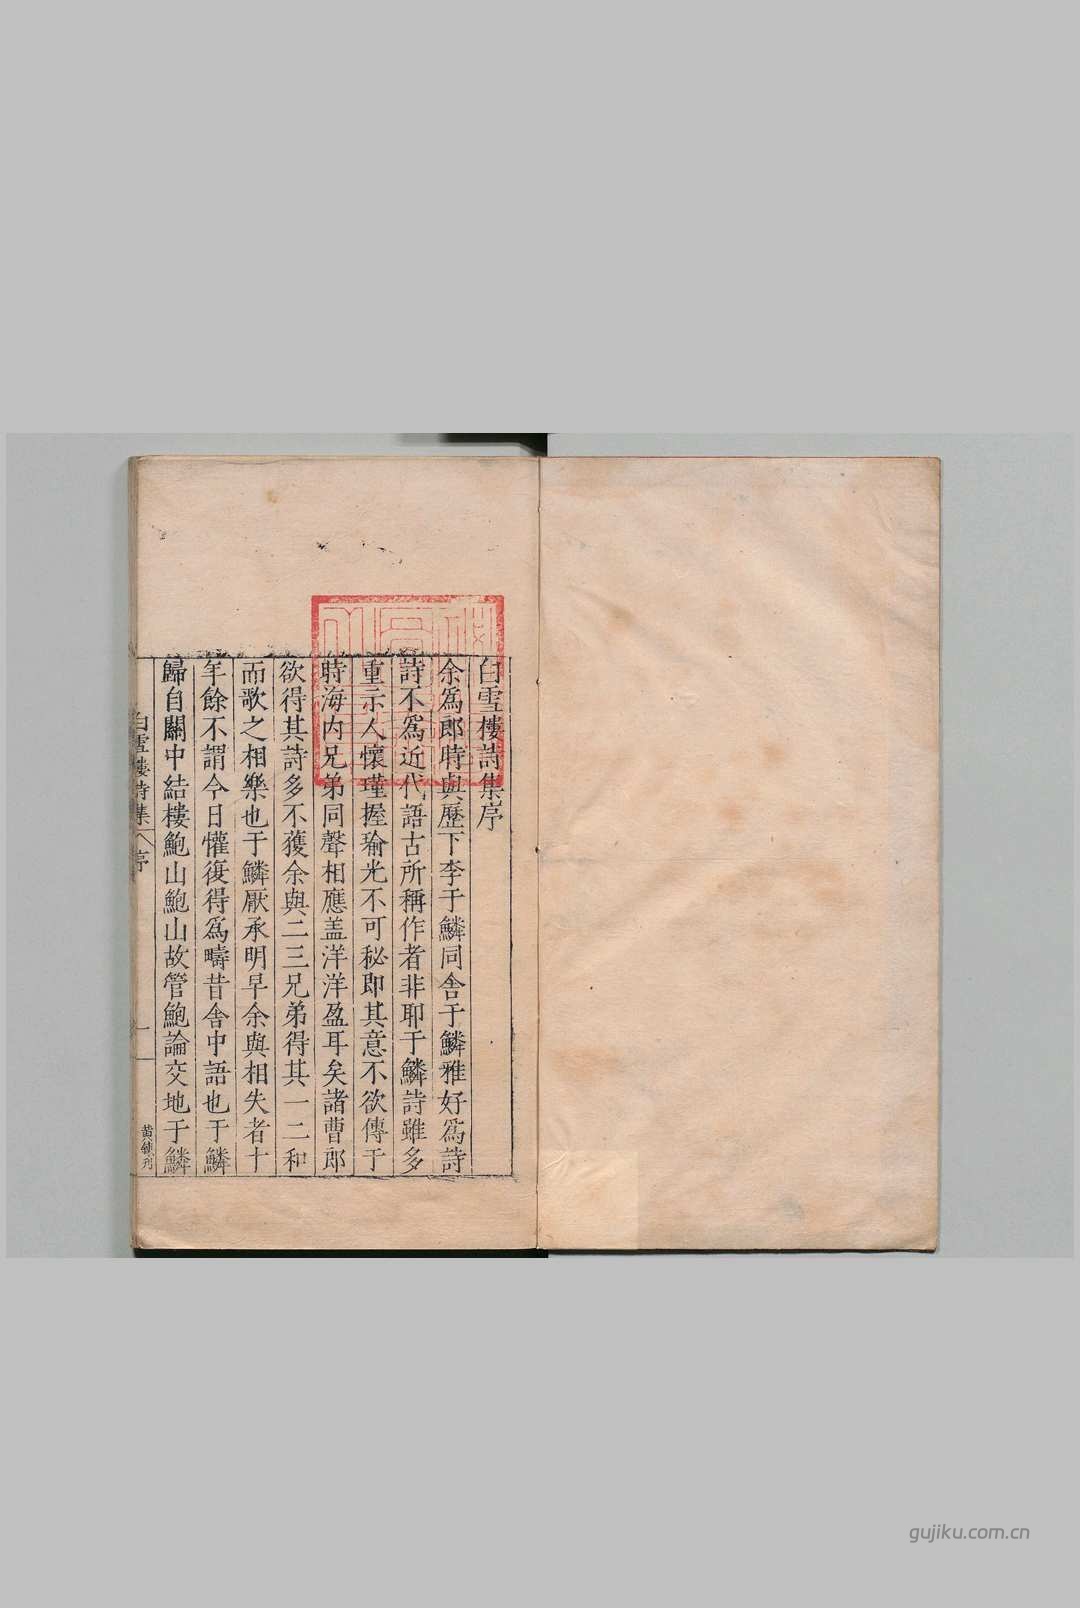 白雪樓詩集序
余爲郎時與歷下李于鱗同舍于鱗雅好爲詩
詩不爲近代語古所稱作者非耶于鱗詩雖多
重示人懷瑾握瑜光不可秘即其意不欲傳于
時海内兄弟同聲相應盖洋洋盈耳矣諸曹郎
欲得其詩多不獲余與二三兄弟得其一二和
而歌之相樂也于鱗厭承明早余與相失者十
年餘不謂今日懽復得爲疇昔舍中語也于鱗
歸自關中結樓鮑山鮑山故管鮑論交地于鱗
白雪樓詩集 序 一
gujiku.com.cn